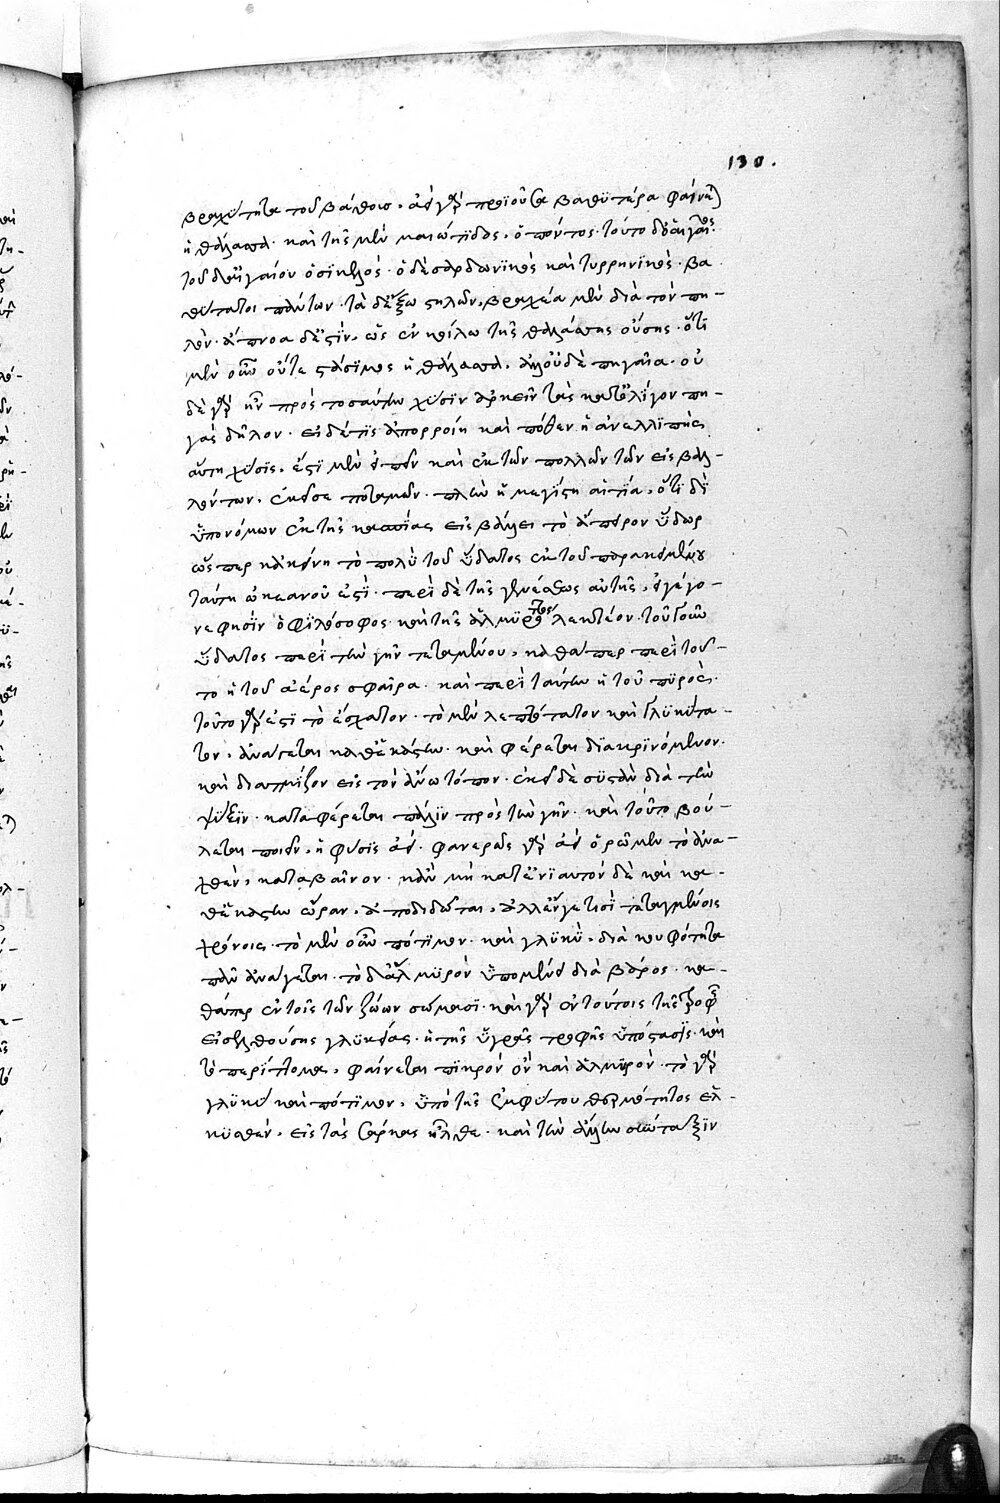 130.
βραχύτητα τοῦ βάθους. ἀεὶ γὰρ προϊοῦσα βαθυτέρα φαίνεται
ἡ θάλασσα. καὶ τῆς μὲν μαιώτιδος, ὁ πόντος. τούτου δὲ αἰγαῖος.
τοῦ δὲ αἰγαίου ὁ σικελός. ὁ δὲ σαρδωνικὸς καὶ τυρρηνικός. βα
θύτατοι πάντων. τὰ δ' ἔξω στηλῶν, βραχέα μὲν διὰ τὸν πη-
λόν. ἄπνοα δ' ἐστὶν, ὡς ἐν κοίλω τῆς θαλάσσης οὔσης. ὅτι
μὲν οὖν οὔτε στάσιμος ἡ θάλασσα. ἀλλ' οὐδὲ πηγαῖα. οὐ
δὲ γὰρ ἦν πρὸς τοσαύτην χύσιν ἀρκεῖν τὰς κατ' ὀλίγον πη-
γὰς δῆλον. εἰ δέ τις ἀποροίη καὶ πόθεν ἡ ἀνελλιπὴς
αὕτη χύσις, ἔστι μὲν εἰπεῖν καὶ ἐκ τῶν πολλῶν τῶν εἰσβαλ-
λόντων, ἐκεῖσε ποταμῶν. πλὴν ἡ μεγίστη αἰτία, ὅτι δι'
ὑπονόμων ἐκ τῆς εἰσβάλλει τὸ ἄπειρον ὕδωρ
ὥσπερ κἀκείνη τὸ πολὺ τοῦ ὕδατος ἐκ τοῦ παρακειμένου
ταύτη ὠκεανοῦ ἐστί. περὶ δὲ τῆς γενέσεως αὐτῆς, εἰ γέγο-
νε φησὶν ὁ φιλόσοφος καὶ τῆς ἁλμυρότητος λεκτέον. τοῦ γοῦν
ὕδατος περὶ τὴν γῆν τεταμένου, καθάπερ περὶ τοῦ-
το ἡ τοῦ ἀέρος σφαῖρα. καὶ περὶ ταύτην ἡ τοῦ πυρός.
τοῦτο γάρ ἐστι τὸ ἔσχατον. τὸ μὲν λεπτότατον καὶ γλυκύτα-
τον, ἀνάγεται καθ' ἑκάστην. καὶ φέρεται διακρινόμενον.
καὶ διατμίζον εἰς τὸν ἄνω τόπον. ἐκεῖ δὲ συστὰν διὰ τὴν
ψύξιν. καταφέρεται πάλιν πρὸς τὴν γῆν. καὶ τοῦτο βού-
λεται ποιεῖν, ἡ φύσις ἀεί. φανερῶς γὰρ ἀεὶ ὁρῶμεν τὸ ἀνα-
χθὲν, καταβαῖνον. κἂν μὴ κατ' ἐνιαυτὸν δὲ καὶ κα-
θ' ἑκάστην ὥραν, ἀποδιδῶται, ἀλλ' ἔν γέ τισι τεταγμένοις
χρόνοις. τὸ μὲν οὖν πότιμον. καὶ γλυκὺ, διὰ κουφότητα
πᾶν ἀνάγεται. τὸ δὲ ἁλμυρὸν ὑπομένει διὰ βάρος. κα-
θάπερ ἐν τοῖς τῶν ζώων σώμασι. καὶ γὰρ ἐν τούτοις τῆς τροφῆς
εἰσελθούσης γλυκείας. ἡ τῆς ὑγρᾶς τροφῆς ὑπόστασις. καὶ
τὸ περίττωμα, φαίνεται πικρὸν ὂν καὶ ἁλμυρόν. τὸ γὰρ
γλυκὺ καὶ πότιμον, ὑπὸ τῆς ἐμφύτου θερμότητος ἑλ-
κυσθὲν, εἰς τὰς σάρκας ἦλθε. καὶ τὴν ἄλλην σύνταξιν